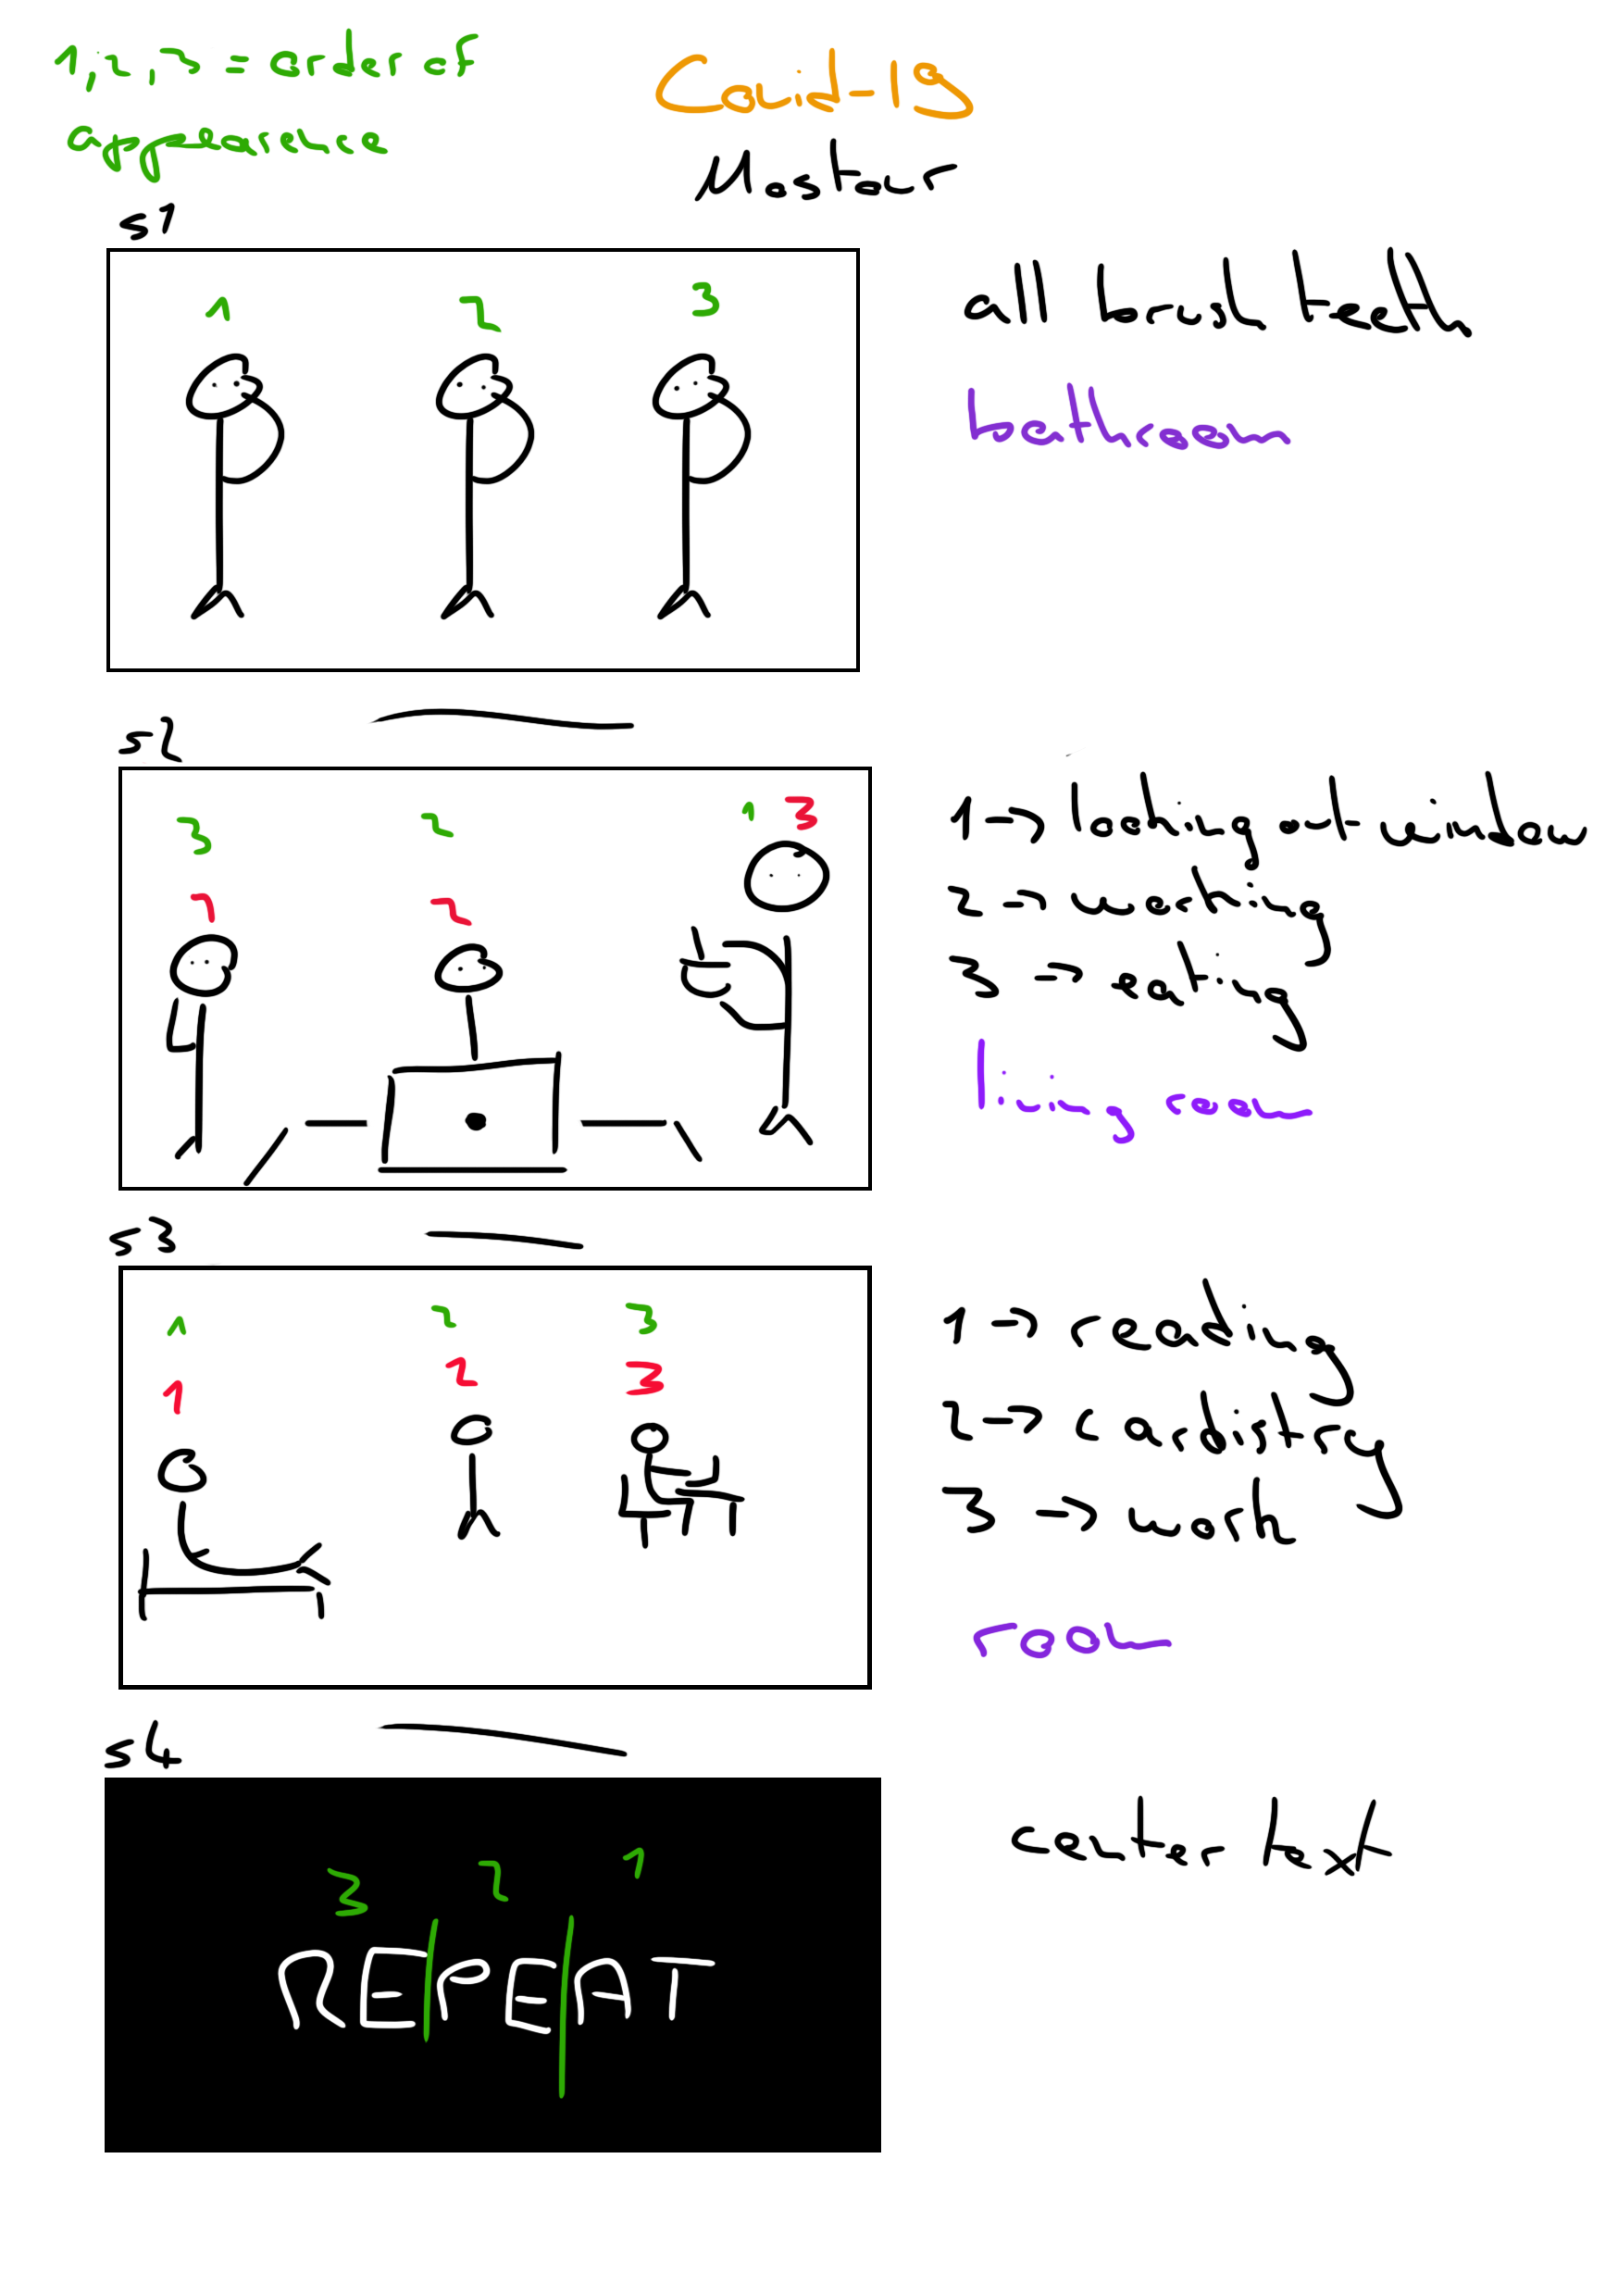 1,2,3 = order of
appearence
Covid-19
Mostaur
s1
1 2 3
all brush teeth
bathroom
s2
3 2 1 3
1 2
1 → looking out window
2 → working
3 → eating
living room
s3
1 2 3
1 2 3
1 → reading
2 → cardistry
3 → work
room
s4
3 2 1
REPEAT
center text